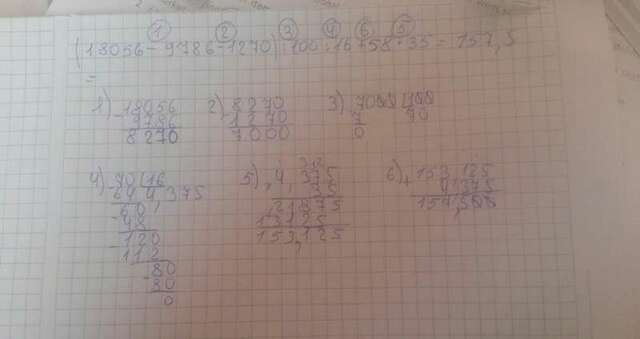 1 2 3 4 6 5
(18056 - 9786 - 1270) : 100 : 16 + 58 · 35 = 157,5
=
1) 18056 2) 8270 3) 7000 100
- 9786 - 1270 7 70
8270 7000 0
4) 70 16 5) 4,375 6) + 153,125
64 4,375 35 4,375
60 21875 157,500
- 48 13125
120 153,125
112
- 80
80
0